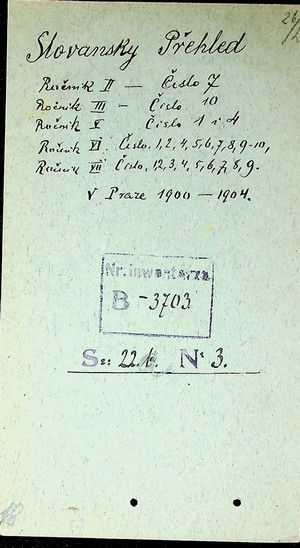 Slovansky Přehled
Ročnik II — Čislo 7
Ročnik III — Čislo 10
Ročnik V Čislo 1 i 4
Ročnik VI. Čislo. 1, 2, 4, 5, 6, 7, 8, 9-10,
Ročnik VII Čislo, 12, 3, 4, 5, 6, 7, 8, 9.
V Praze 1900 — 1904.
Nr. inwentarza
B - 3703
Sz: 22.b. Nr 3.
18